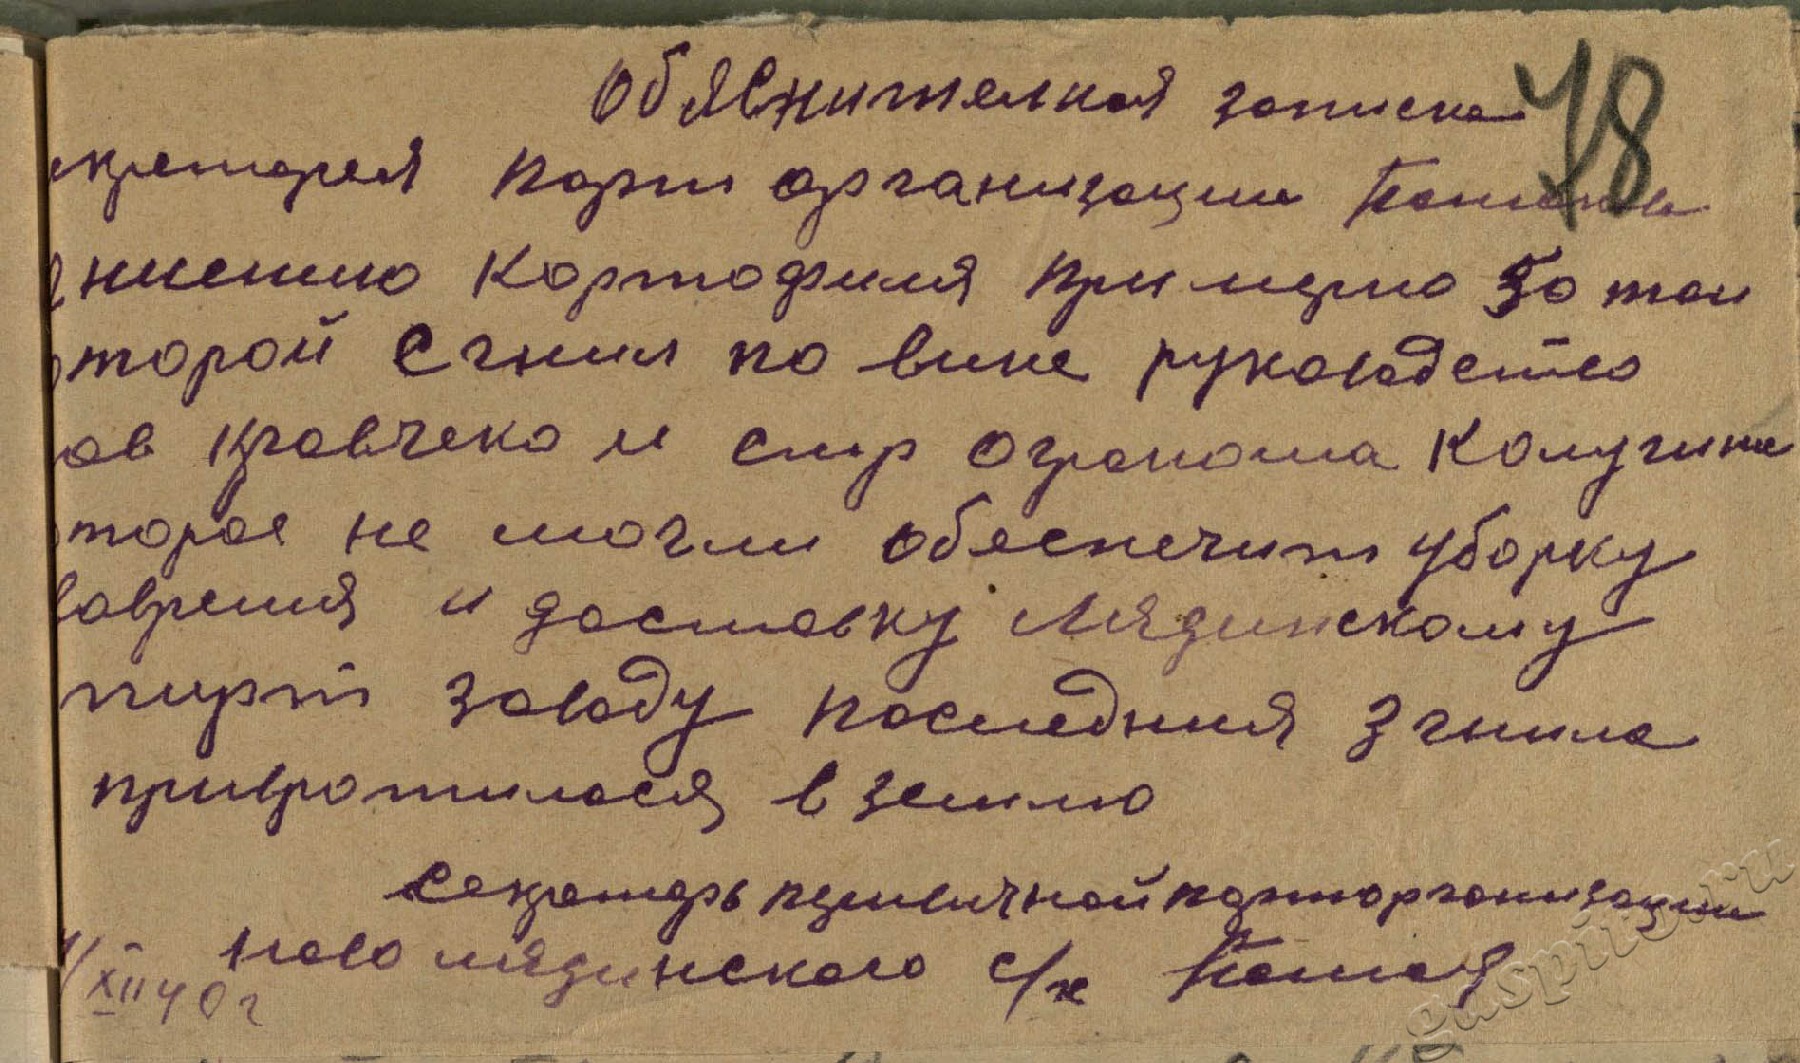 Обяснительная записка 78
кретарея парт организации
нисению картофиля примерно 50 тон
оторой сгнил по вине руководство
ов Кравчеко и стар огронома Калугина
оторое не могли обяспечит уборку
вовремя и доставку Лядинскому
пирт заводу последния згнила
привротилася в землю
Секретарь първичной парторганизации
Ново лядинского с/х
XII 40 г
gaspito.ru